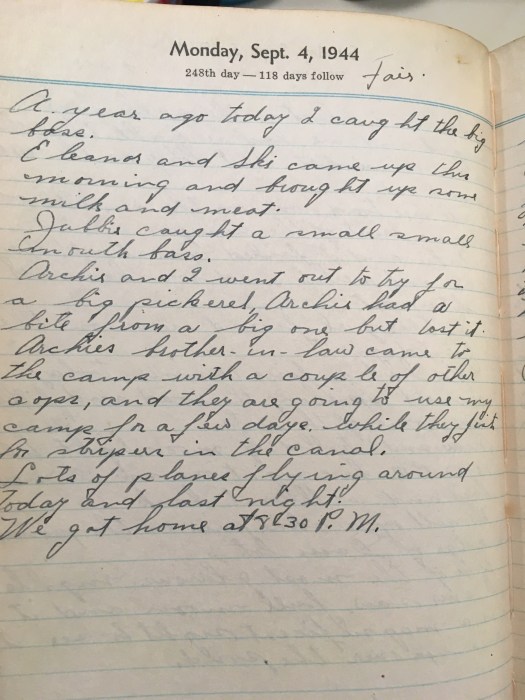 Monday, Sept. 4, 1944
248th day — 118 days follow Fair.
A year ago today I caught the big
bass.
Eleanor and Ski came up this
morning and brought up some
milk and meat.
caught a small small
mouth bass.
Archie and I went out to try for
a big pickerel, Archie had a
bite from a big one but lost it.
Archies brother-in-law came to
the camp with a couple of other
cops, and they are going to use my
camp for a few days. while they fish
for stripers in the canal.
Lots of planes flying around
today and last night.
We got home at 8:30 P. M.